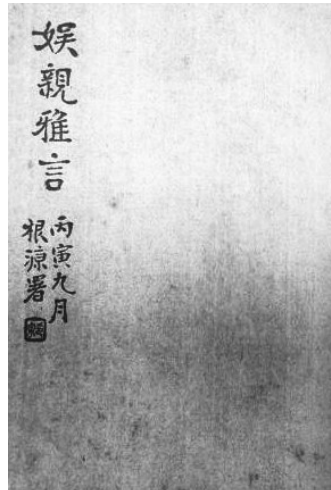 娱親雅言
丙寅九月
根源署